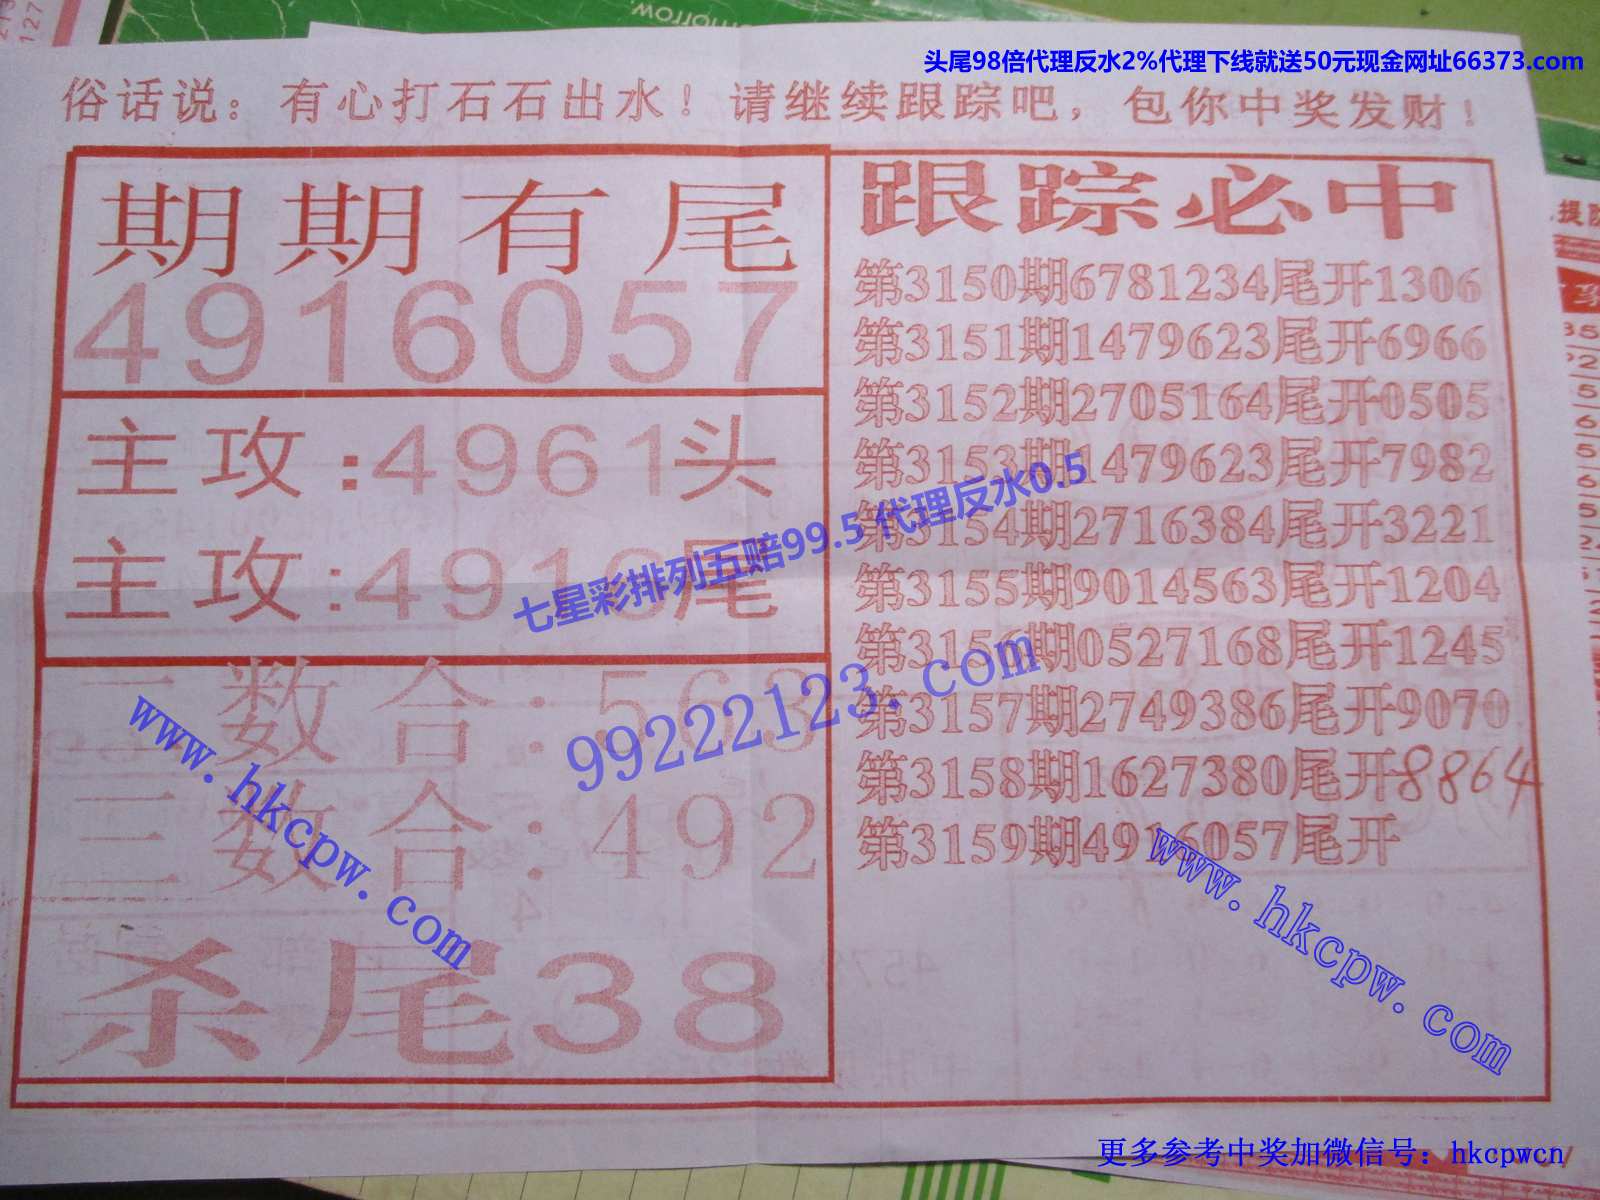 头尾98倍代理反水2%代理下线就送50元现金网址66373.com
俗话说：有心打石石出水！请继续跟踪吧，包你中奖发财！
期期有尾
4916057
主攻:4961头
主攻:4916尾
二数合:563
三数合:492
杀尾38
跟踪必中
第3150期6781234尾开1306
第3151期1479623尾开6966
第3152期2705164尾开0505
第3153期1479623尾开7982
第3154期2716384尾开3221
第3155期9014563尾开1204
第3156期0527168尾开1245
第3157期2749386尾开9070
第3158期1627380尾开8864
第3159期4916057尾开
七星彩排列五赔99.5代理反水0.5
99222123.com
www.hkcpw.com
www.hkcpw.com
更多参考中奖加微信号：hkcpwcn